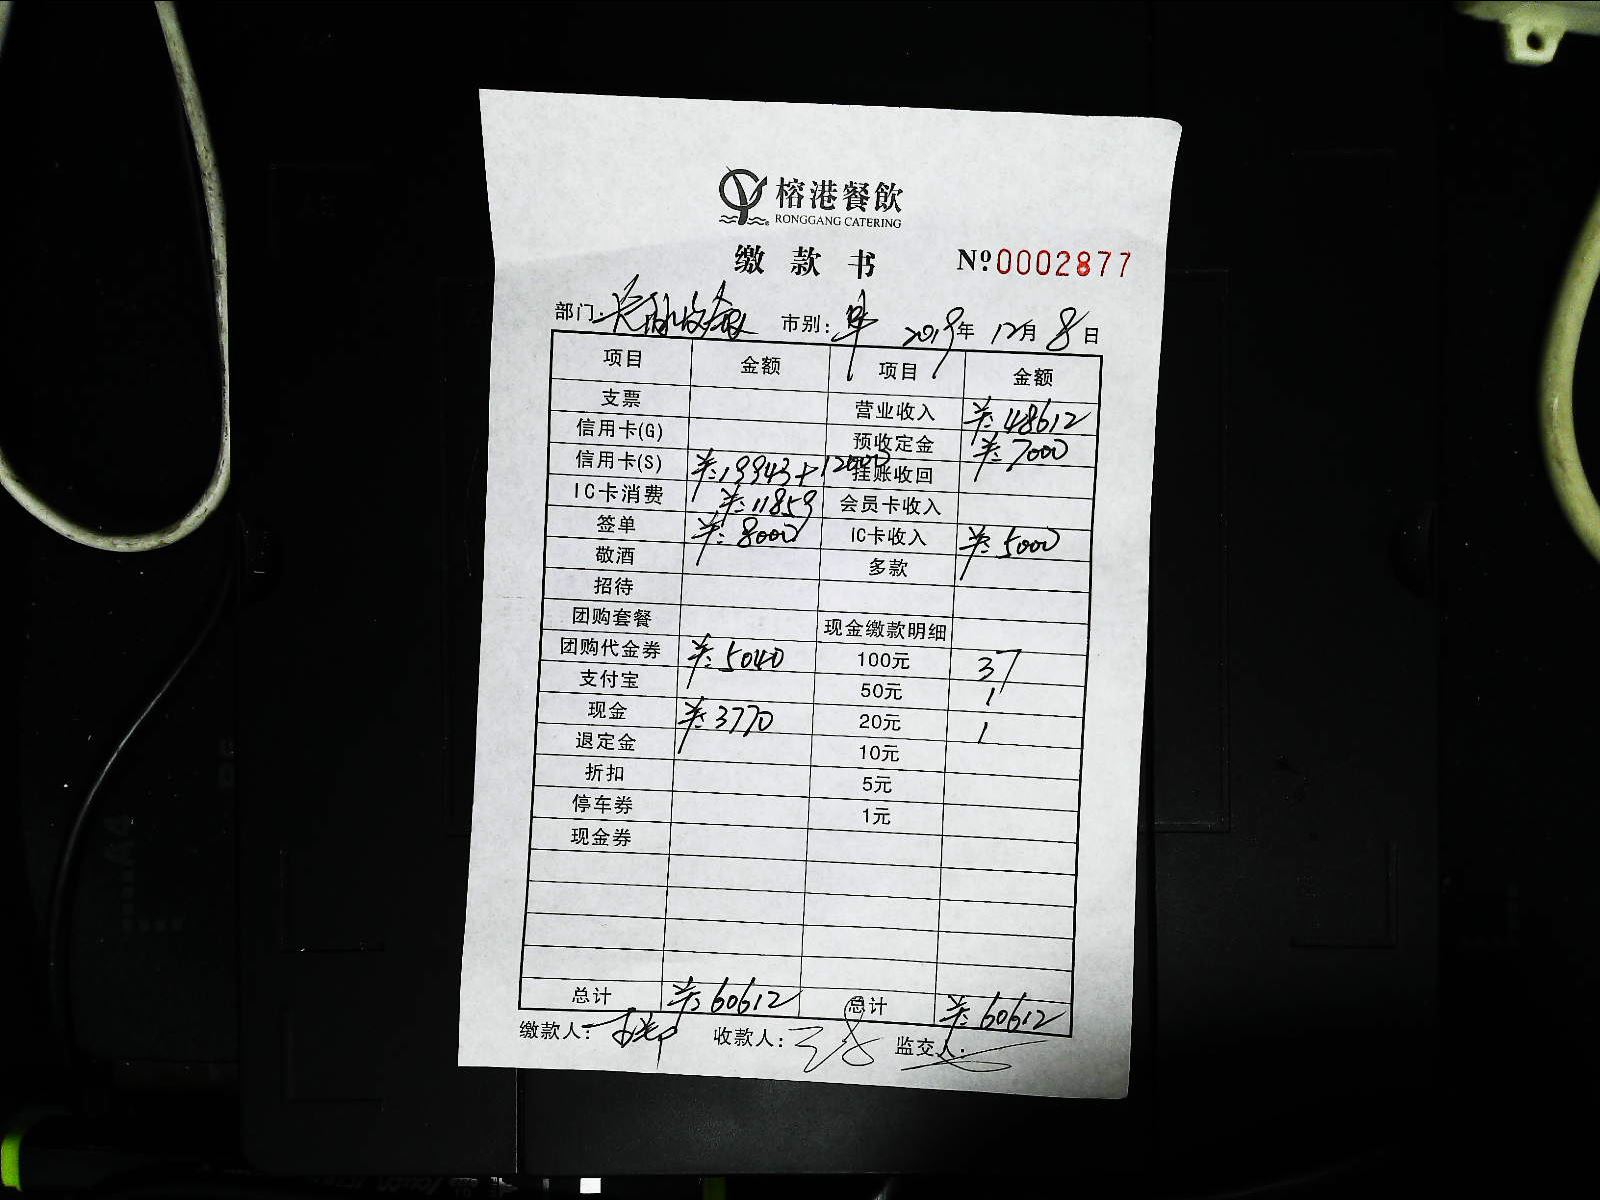 榕港餐飲
RONGGANG CATERING
缴款书 Nº0002877
部门: 市别: 早 2019年 12月 8日
项目 金额 项目 金额
支票 营业收入 ￥:48612
信用卡(G) 预收定金 ￥:7000
信用卡(S) ￥:19943+12000 挂账收回
IC卡消费 ￥:11859 会员卡收入
签单 ￥:8000 IC卡收入 ￥:5000
敬酒 多款
招待
团购套餐 现金缴款明细
团购代金券 ￥:5040 100元 37
支付宝 50元 1
现金 ￥:3770 20元 1
退定金 10元
折扣 5元
停车券 1元
现金券
总计 ￥:60612 总计 ￥:60612
缴款人: 收款人: 监交人: